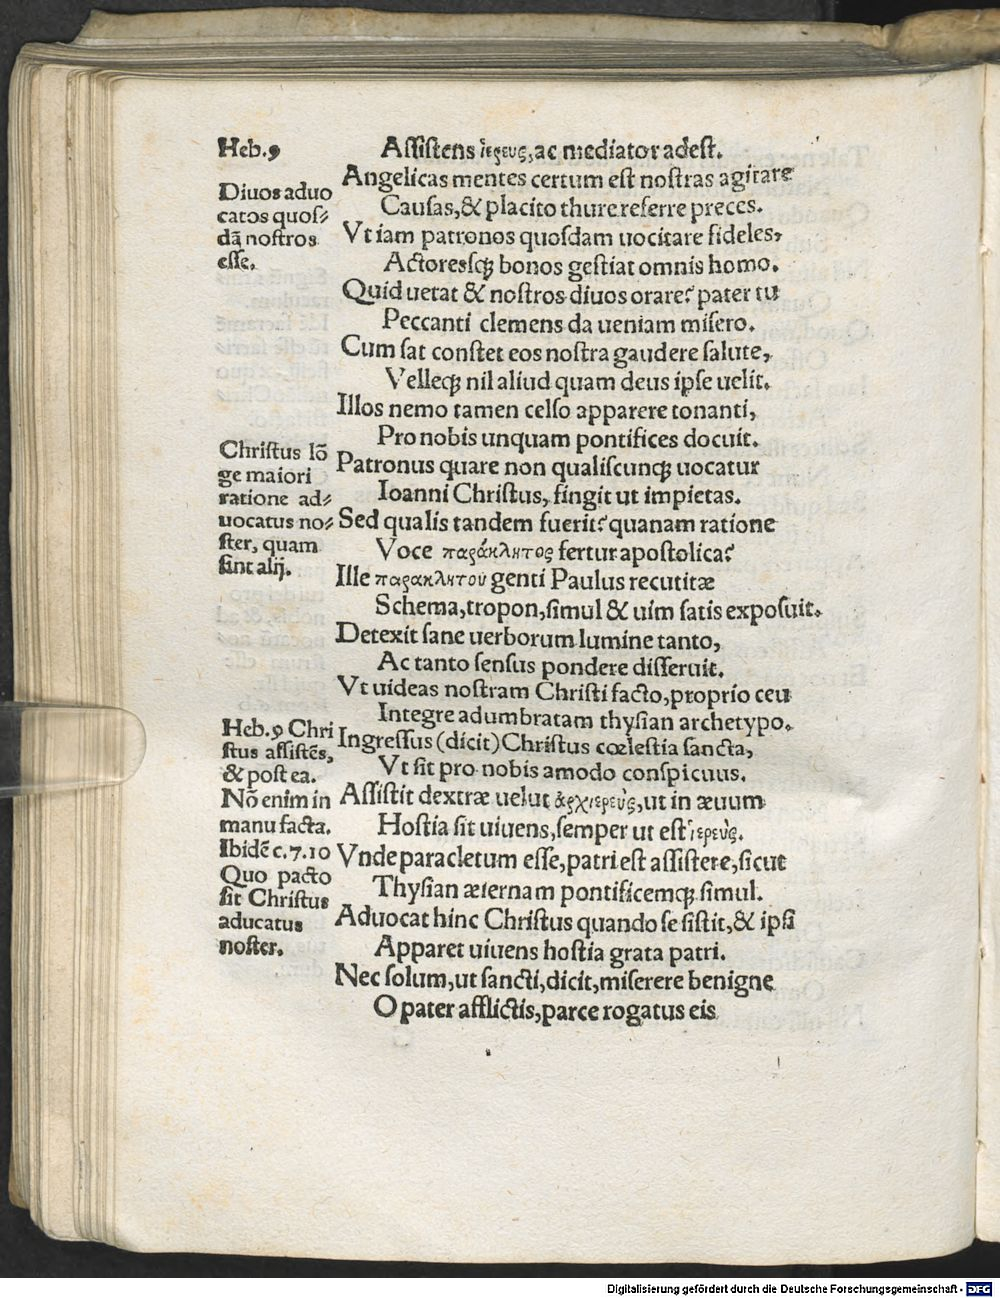 Heb.9
Diuos aduo
catos quos⸗
dã nostros
esse.
Christus lõ
ge maiori
ratione ad⸗
uocatus no⸗
ster, quam
sint alij.
Heb.9 Chri
stus assistẽs,
& post ea.
Nõ enim in
manu facta.
Ibidẽ c.7.10
Quo pacto
sit Christus
aducatus
noster.
Assistens ἱερευς, ac mediator adest.
Angelicas mentes certum est nostras agitare
Causas, & placito thure referre preces.
Vt iam patronos quosdam uocitare fideles,
Actoresqꝫ bonos gestiat omnis homo.
Quid uetat & nostros diuos orare? pater tu
Peccanti clemens da ueniam misero.
Cum sat constet eos nostra gaudere salute,
Velleqꝫ nil aliud quam deus ipse uelit.
Illos nemo tamen celso apparere tonanti,
Pro nobis unquam pontifices docuit.
Patronus quare non qualiscunqꝫ uocatur
Ioanni Christus, fingit ut impietas.
Sed qualis tandem fuerit? quanam ratione
Voce παράκλητος fertur apostolica?
Ille παρακλητου genti Paulus recutitæ
Schema, tropon, simul & uim satis exposuit.
Detexit sane uerborum lumine tanto,
Ac tanto sensus pondere disseruit.
Vt uideas nostram Christi facto, proprio ceu
Integre adumbratam thysian archetypo.
Ingressus (dicit) Christus cœlestia sancta,
Vt sit pro nobis amodo conspicuus.
Assistit dextræ uelut ἀρχιερεὺς, ut in æuum
Hostia sit uiuens, semper ut est ἱερεὺς.
Vnde paracletum esse, patri est assistere, sicut
Thysian æternam pontificemqꝫ simul.
Aduocat hinc Christus quando se sistit, & ipsi
Apparet uiuens hostia grata patri.
Nec solum, ut sancti, dicit, miserere benigne
O pater afflictis, parce rogatus eis
Digitalisierung gefördert durch die Deutsche Forschungsgemeinschaft - DFG